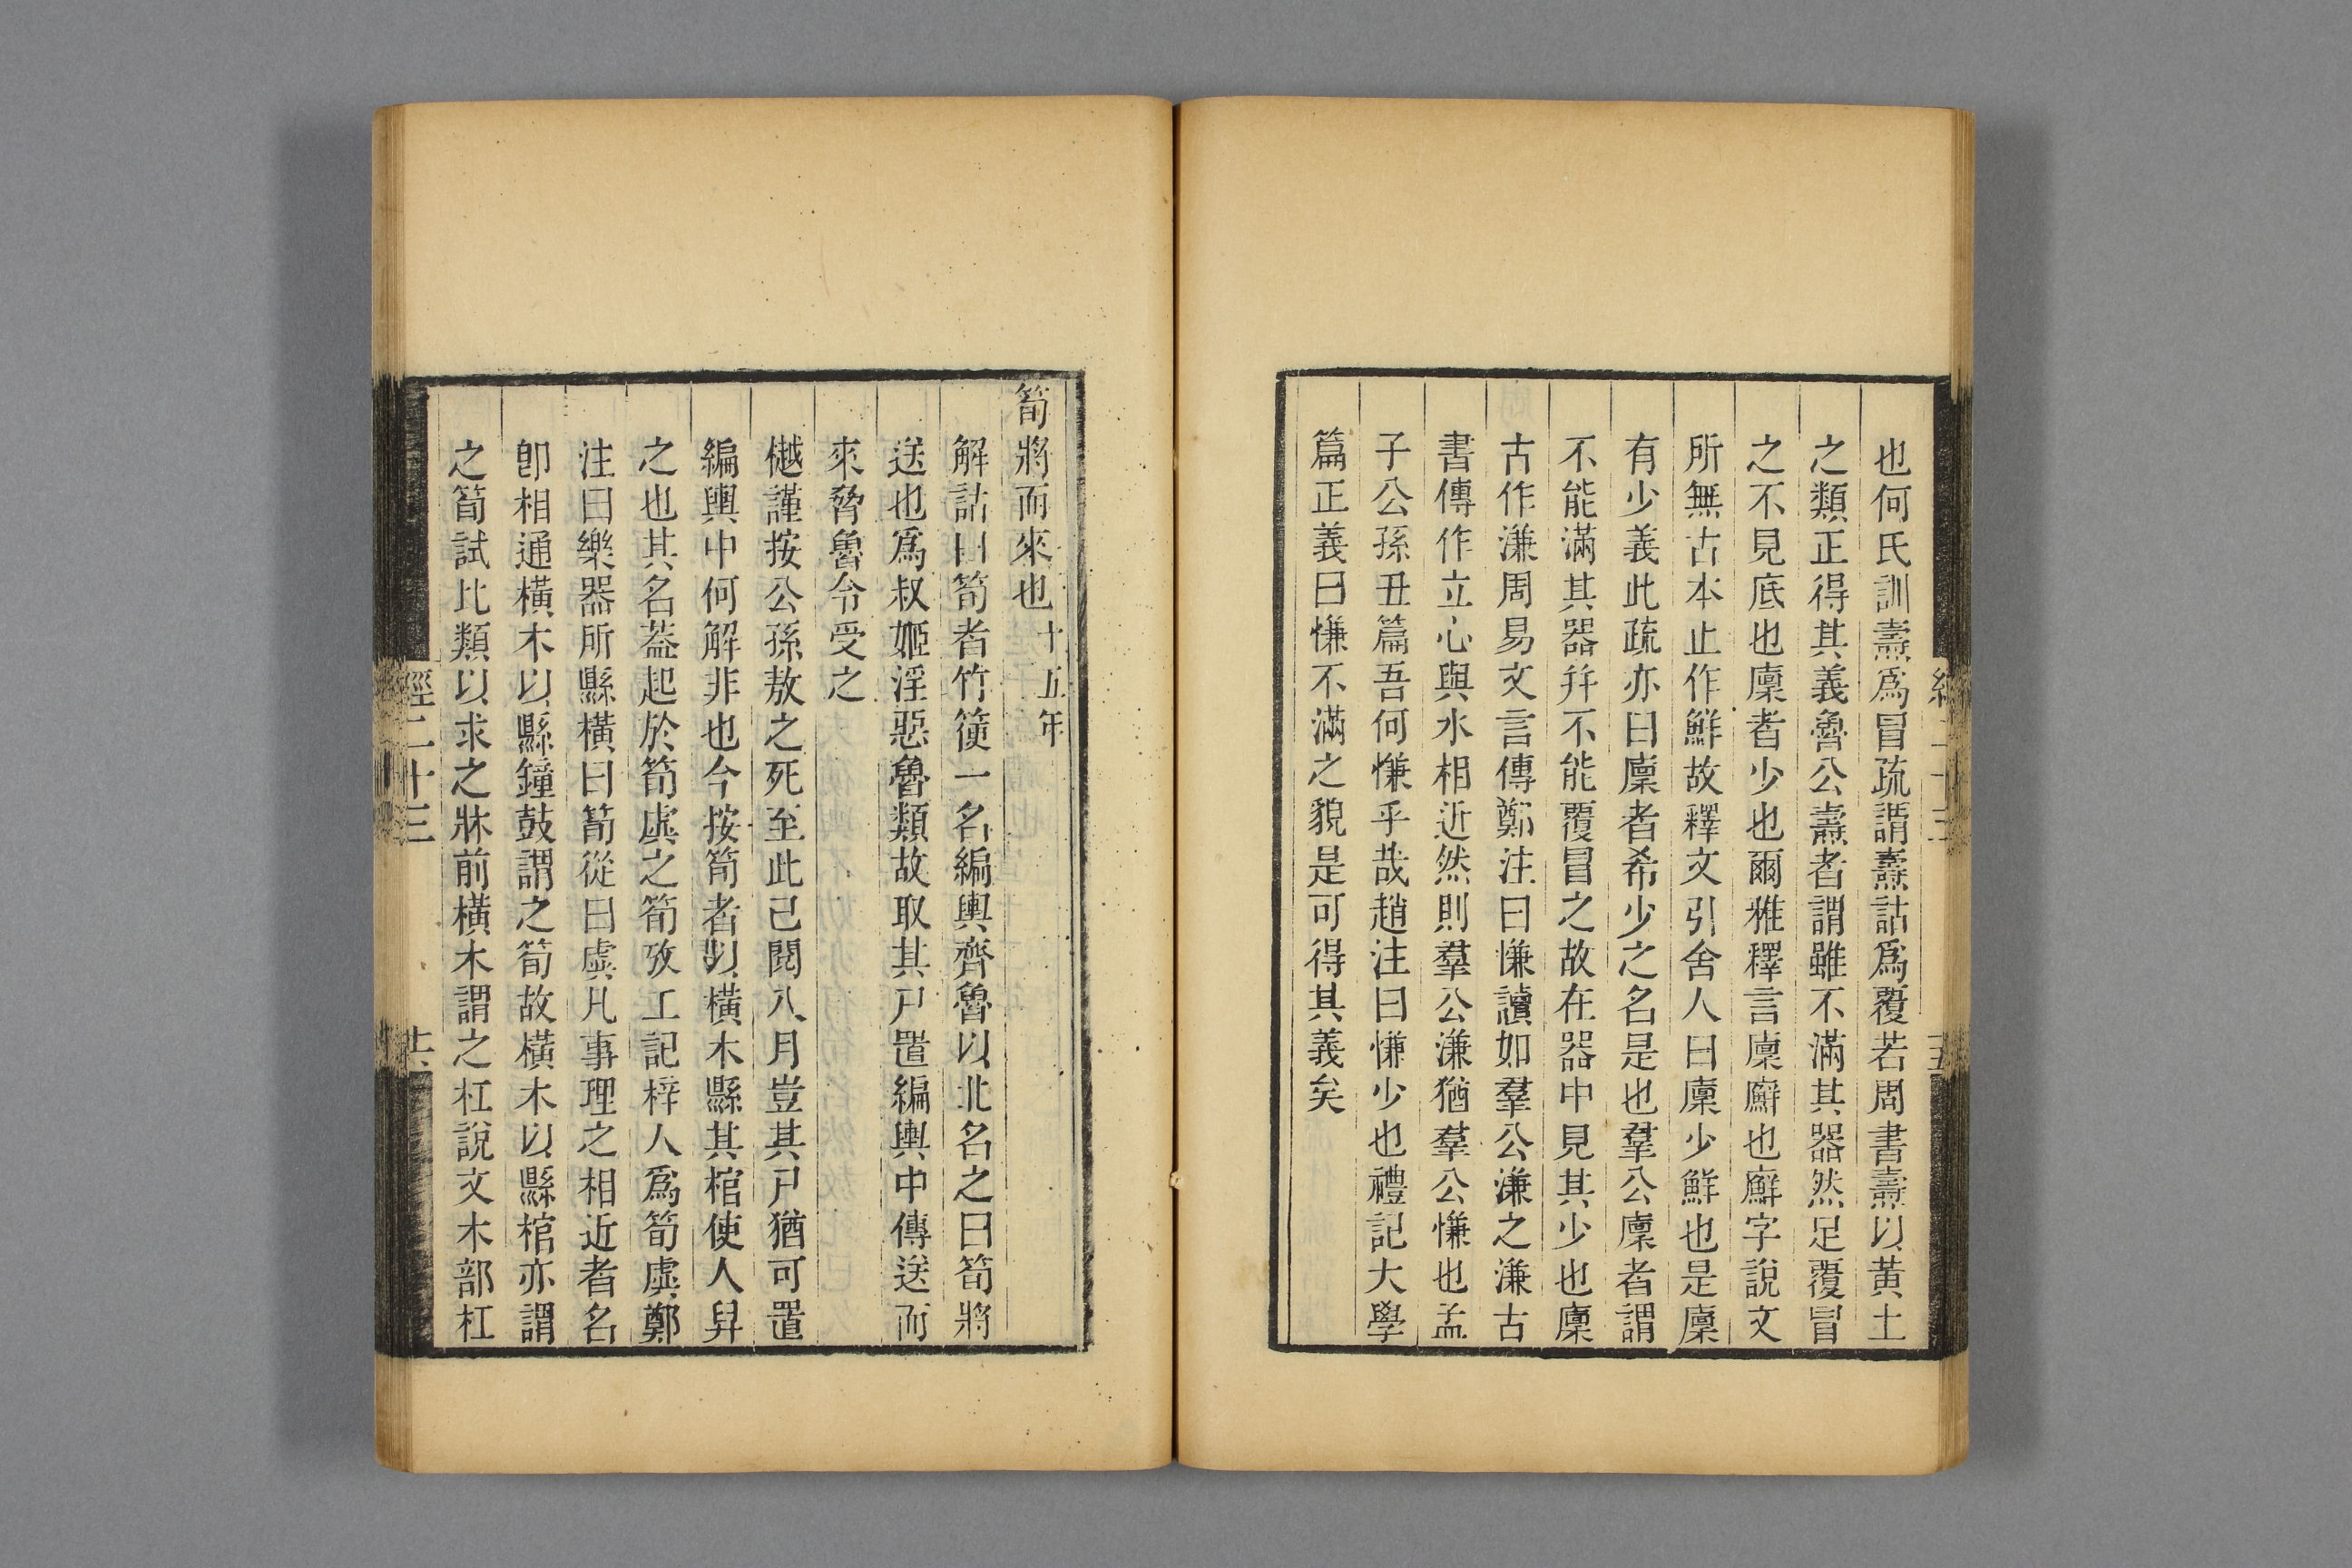 也何氏訓燾爲冒疏謂燾詁爲覆若周書燾以黃土
之類正得其義魯公燾者謂雖不滿其器然足覆冒
之不見底也廩者少也爾雅釋言廩廯也廯字說文
所無古本止作鮮故釋文引舍人曰廩少鮮也是廩
有少義此疏亦曰廩者希少之名是也羣公廩者謂
不能滿其器幷不能覆冒之故在器中見其少也廩
古作溓周易文言傳鄭注曰慊讀如羣公溓之溓古
書傳作立心與水相近然則羣公溓猶羣公慊也孟
子公孫丑篇吾何慊乎哉趙注曰慊少也禮記大學
篇正義曰慊不滿之貌是可得其義矣
筍將而來也十五年
解詁曰筍者竹箯一名編輿齊魯以北名之曰筍將
送也爲叔姬淫惡魯類故取其尸置編輿中傳送而
來脅魯令受之
樾謹按公孫敖之死至此已閱八月豈其尸猶可置
編輿中何解非也今按筍者以橫木縣其棺使人舁
之也其名葢起於筍虡之筍攷工記梓人爲筍虡鄭
注曰樂器所縣橫曰筍從曰虡凡事理之相近者名
卽相通橫木以縣鐘鼓謂之筍故橫木以縣棺亦謂
之筍試比類以求之牀前橫木謂之杠說文木部杠
經二十三
十六